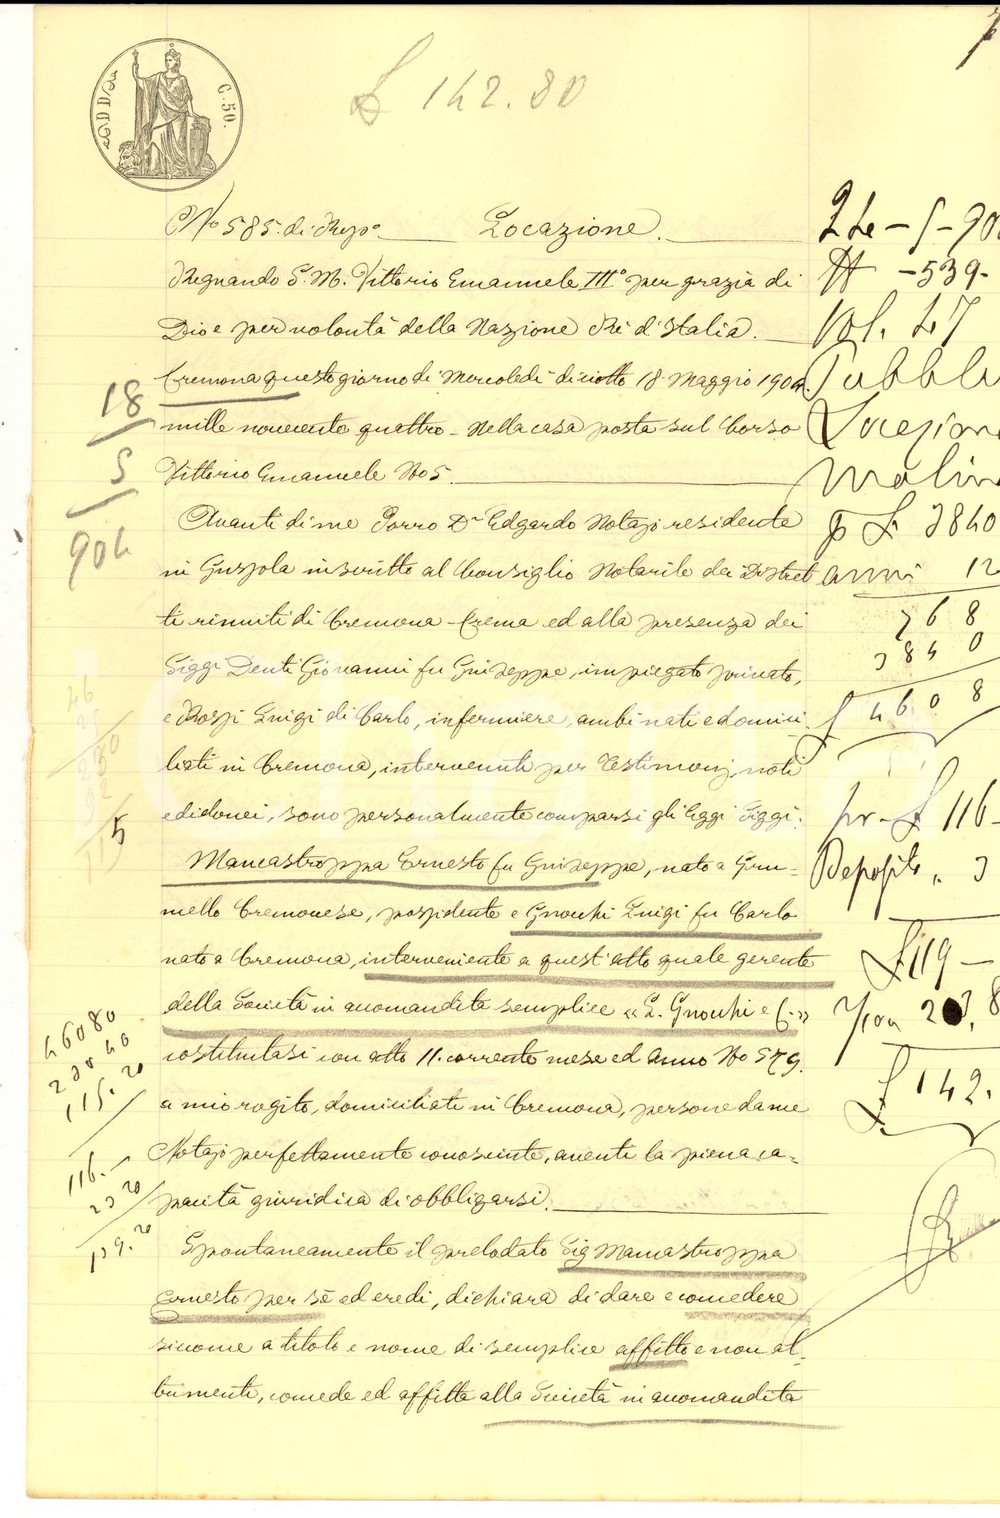 £ 142.80
C. 50.
No 585. di Rep.o Locazione.
Regnando S. M. Vittorio Emanuele III.o per grazia di
Dio e per volontà della Nazione Re d'Italia.
Cremona questo giorno di Mercoledì diciotto 18 Maggio 1904.
mille novecento quattro - Nella casa posta sul Corso
Vittorio Emanuele No 5.
Avanti di me Porro Dr Edgardo Notajo residente
in Gussola inscritto al Consiglio Notarile dei Distret
ti riuniti di Cremona-Crema ed alla presenza dei
Siggi Denti Giovanni fu Giuseppe, impiegato privato,
e Rossi Luigi di Carlo, infermiere, ambi nati e domici
liati in Cremona, intervenuti per Testimonj noti
ed idonei, sono personalmente comparsi gli Eggi Siggi:
Mancastroppa Ernesto fu Giuseppe, nato a Gru=
mello Cremonese, possidente e Gnocchi Luigi fu Carlo
nato a Cremona, interveniente a quest'atto quale gerente
della Società in accomandita semplice «L. Gnocchi e C.»
costituitasi con atto 11. corrente mese ed anno No 579.
a mio rogito, domiciliati in Cremona, persone da me
Notajo perfettamente conosciute, aventi la piena ca=
pacità giuridica di obbligarsi.
Spontaneamente il prelodato Sig Mancastroppa
Ernesto per sè ed eredi, dichiara di dare e concedere
siccome a titolo e nome di semplice affitto e non al=
trimenti, concede ed affitta alla Società in accomandita
18
5
904
5
46080
23040
115.20
116.-
23 20
139.20
24-5-90
# -539-
Vol. 47
Pubbli
Locazion
Molin
p £ 3840
anni 12
768
3840
£ 4608
£ 116-
Deposito " 3
£ 119 -
£ 142.